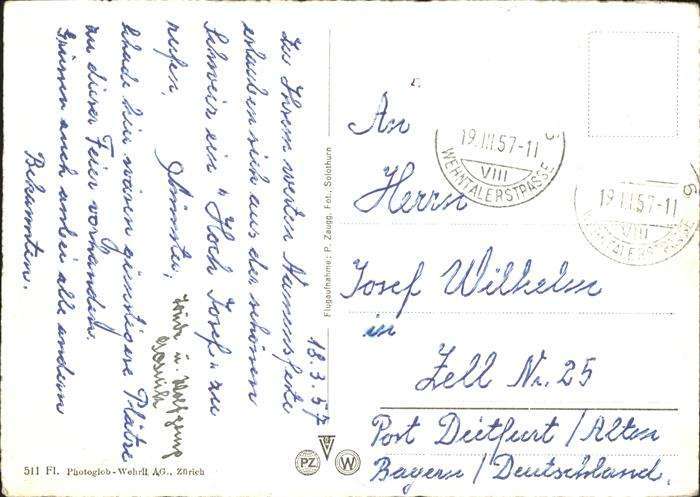 18.3.57
Zu Ihrem werten Namensfeste
erlauben sich aus der schönen
Schweiz ein "Hoch Josef" zu
rufen,
Schade hier wären günstigere Plätze
zu dieser Feier vorhanden.
Grüssen auch anbei alle andern
Bekannten.
511 Fl. Photoglob-Wehrli AG., Zürich
Flugaufnahme: P. Zaugg, Fot., Solothurn
PZ
W
19.III.57-11
VIII
WEHNTALERSTRASSE
19.III.57-11
VIII
WEHNTALERSTRASSE
An
Herrn
Josef Wilhelm
in
Zell Nr. 25
Post Dietfurt / Altm
Bayern / Deutschland.